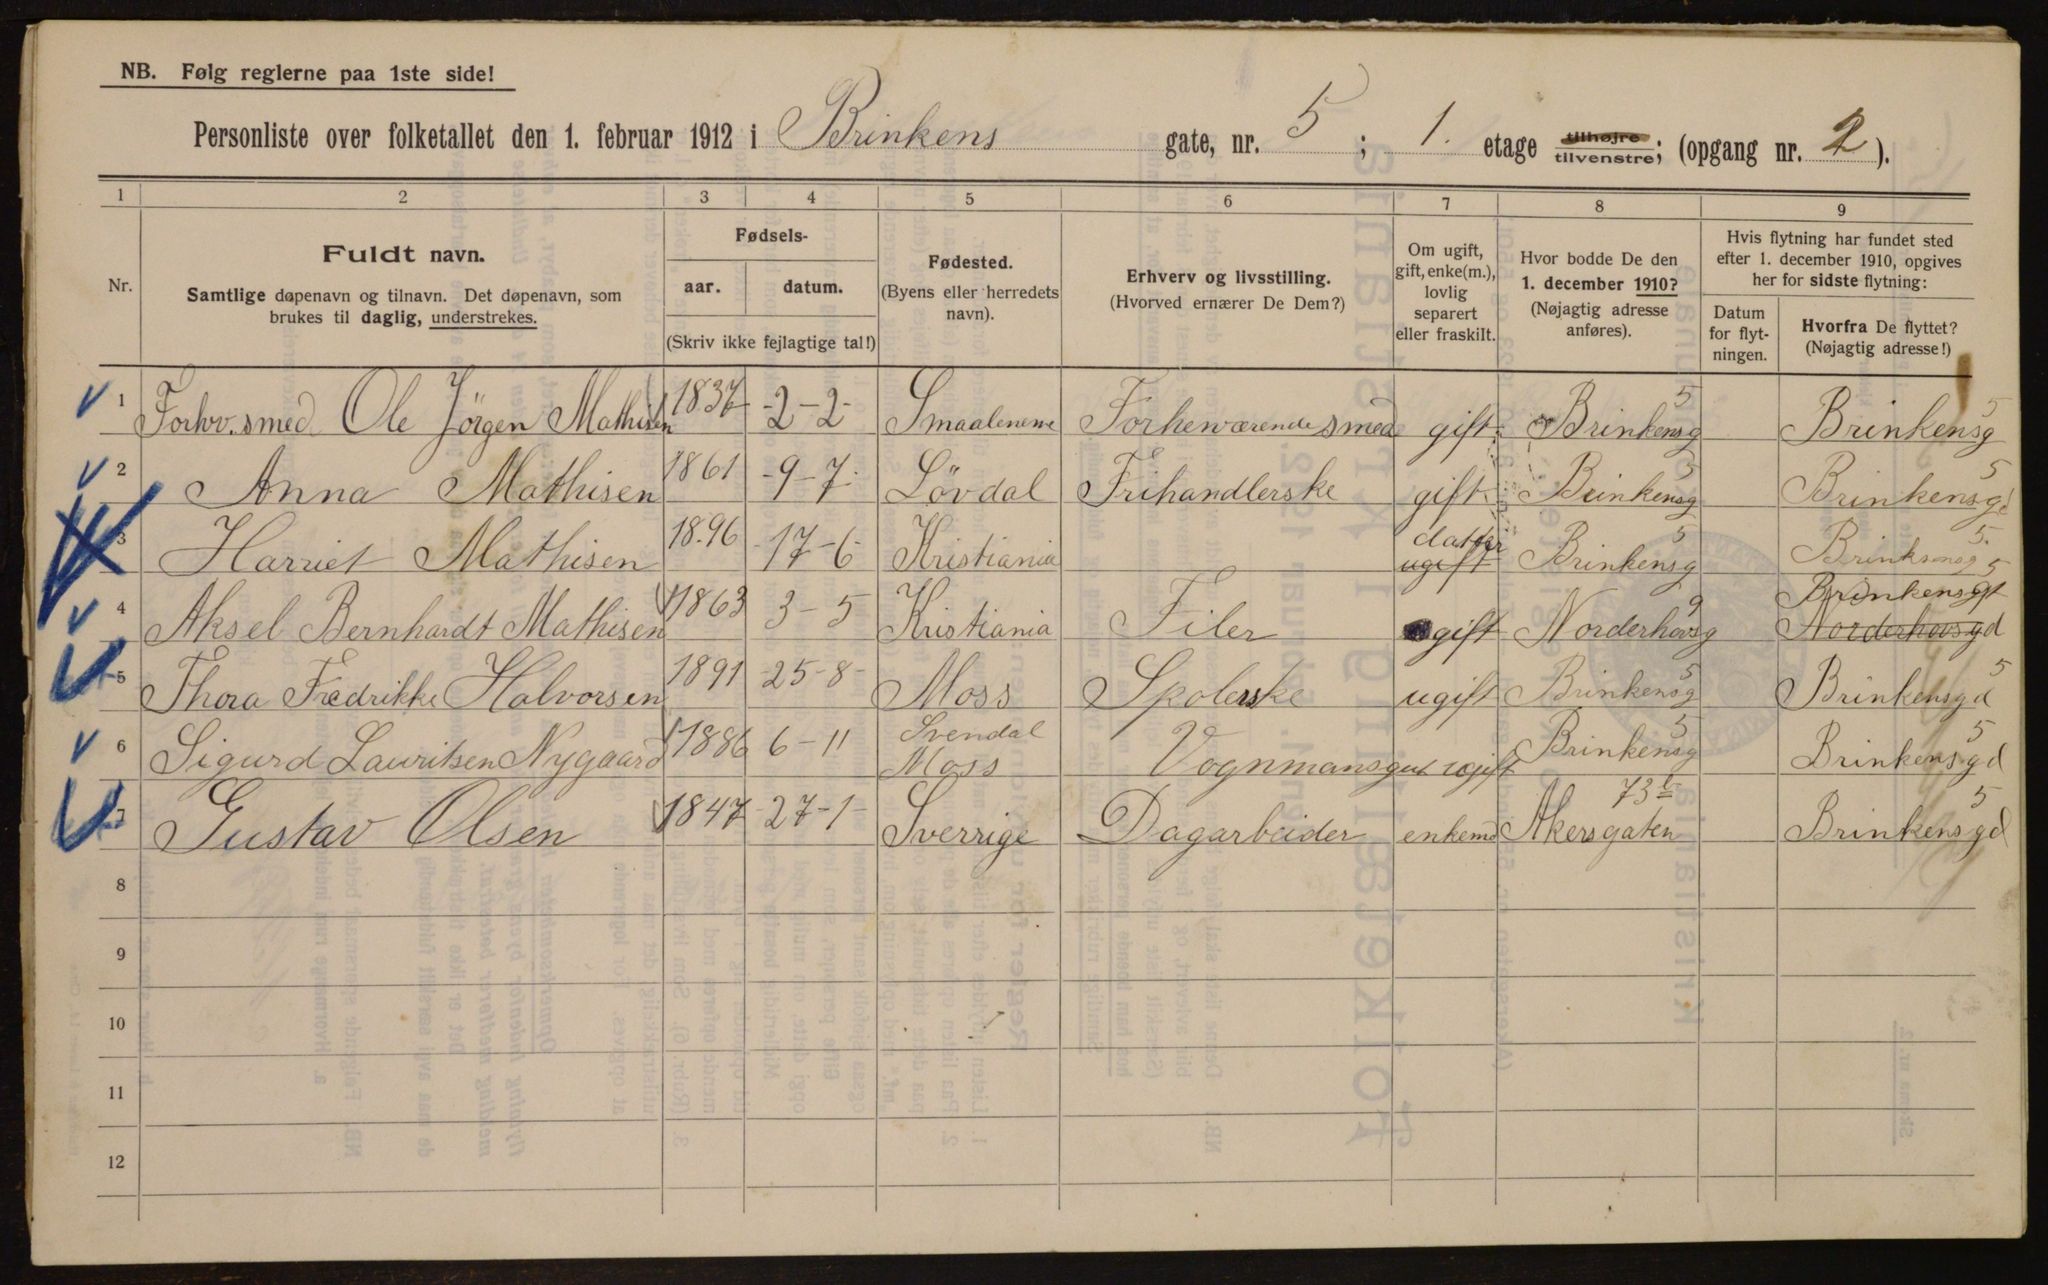 NB. Følg reglerne paa 1ste side!
Personliste over folketallet den 1. februar 1912 i Brinkens gate, nr. 5 ; 1. etage tilhøjre tilvenstre; (opgang nr. 2 ).
1 2 3 4 5 6 7 8 9
Nr.
Fuldt navn.
Samtlige døpenavn og tilnavn. Det døpenavn, som
brukes til daglig, understrekes.
Fødsels-
aar. datum.
(Skriv ikke fejlagtige tal!)
Fødested.
(Byens eller herredets
navn).
Erhverv og livsstilling.
(Hvorved ernærer De Dem?)
Om ugift,
gift, enke(m.),
lovlig
separert
eller fraskilt.
Hvor bodde De den
1. december 1910?
(Nøjagtig adresse
anføres).
Hvis flytning har fundet sted
efter 1. december 1910, opgives
her for sidste flytning:
Datum
for flyt-
ningen.
Hvorfra De flyttet?
(Nøjagtig adresse!)
1 Forhv. smed Ole Jörgen Mathisen 1837 2-2 Smaalenene Forheværende smed gift Brinkensg 5 Brinkensg 5
2 Anna Mathisen 1861 9-7 Lövdal Frihandlerske gift Brinkensg 5 Brinkensgd 5
3 Harriet Mathisen 1896 17-6 Kristiania datter ugift Brinkensg 5 Brinkensg 5
4 Aksel Bernhardt Mathisen 1863 3-5 Kristiania Filer gift Norderhovsg 9 Brinkensgt 5 Norderhovsgd
5 Thora Fredrikke Halvorsen 1891 25-8 Moss Skolerske ugift Brinkensg 5 Brinkensgd 5
6 Sigurd Lauritsen Nygaard 1886 6-11 Svendal Moss Vognmansgut ugift Brinkensg 5 Brinkensgd 5
7 Gustav Olsen 1847 27-1 Sverrige Dagarbeider enkemd Akersgaten 73b Brinkensgd 5
8
9
10
11
12